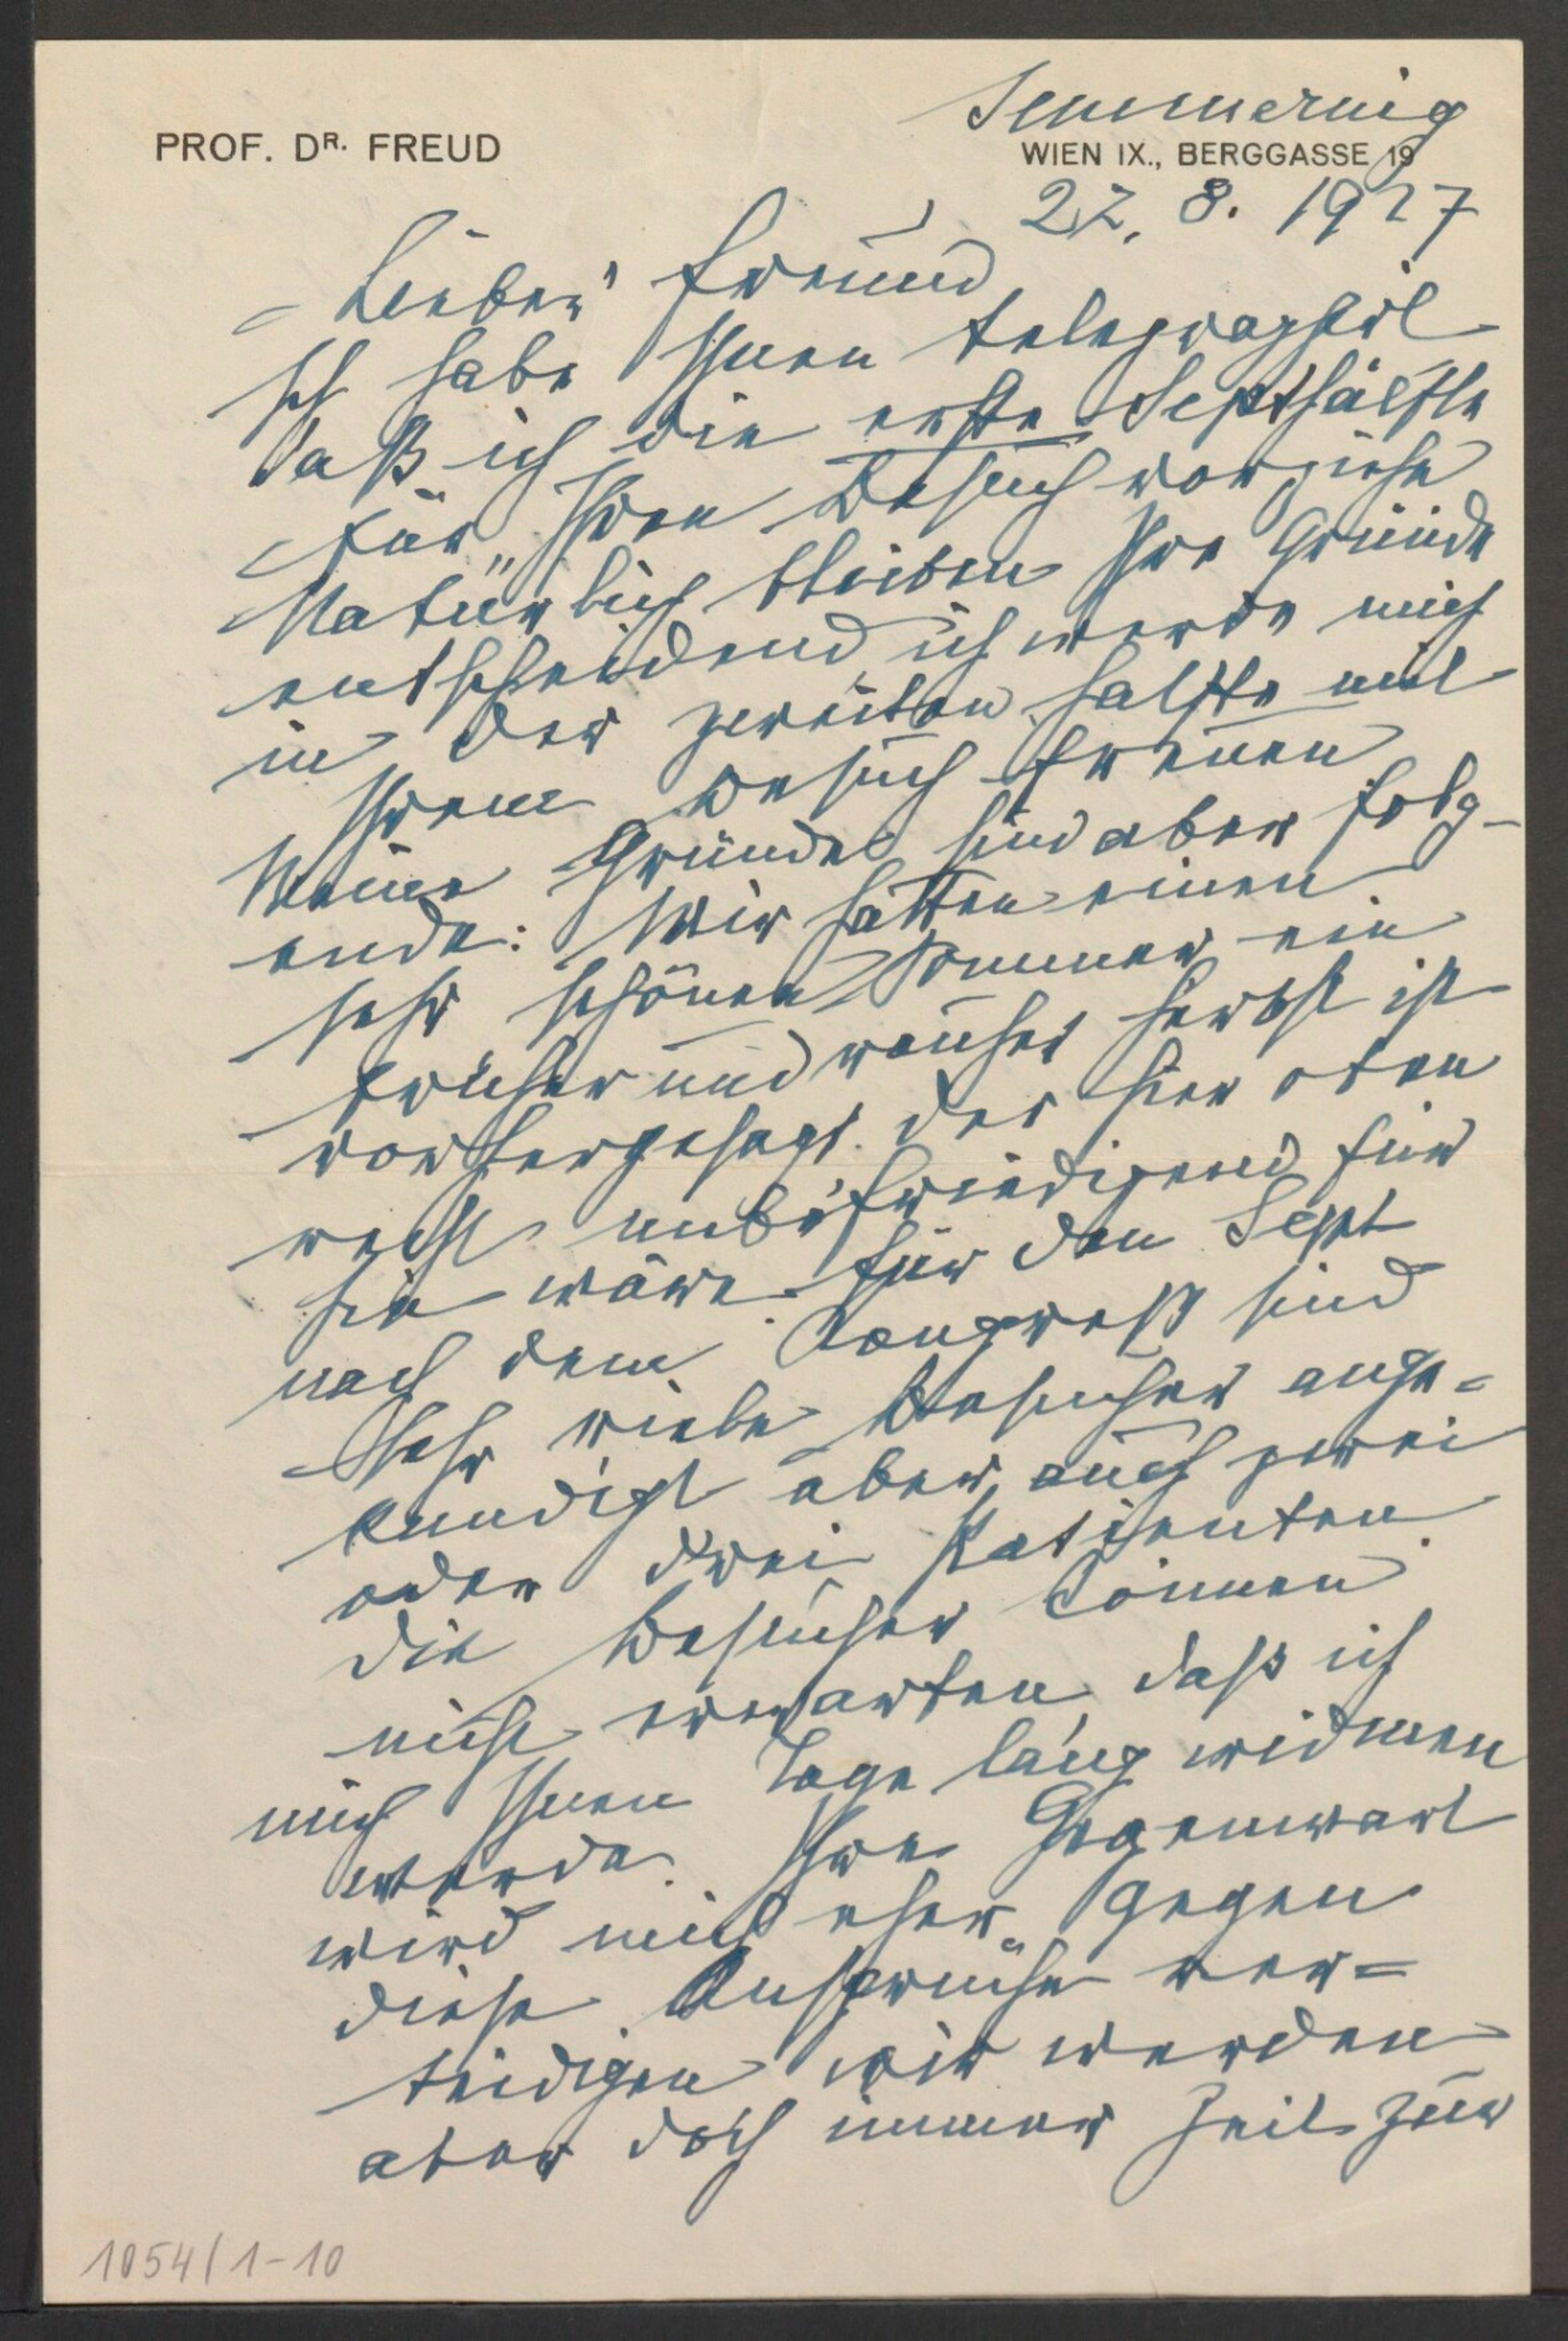 Semmering
PROF. DR. FREUD
WIEN IX., BERGGASSE 19
22. 8. 1927
Lieber Freund
Ich habe Ihnen telegraphirt
daß ich die erste Septhälfte
für Ihren Besuch vorziehe
Natürlich bleiben Ihre Gründe
entscheidend, ich werde mich
in der zweiten Hälfte mit
Ihrem Besuch freuen
Meine Gründe sind aber folg-
ende: Wir hatten einen
sehr schönen Sommer, ein
früher und rauher Herbst ist
vorhergesagt, der hier oben
recht unbefriedigend für
Sie wäre. Für den Sept
nach dem Kongreß sind
sehr viele Besucher ange=
kündigt aber auch zwei
oder drei Patienten.
Die Besucher können
nicht erwarten, daß ich
mich Ihnen Tage lang widmen
werde. Ihre Gegenwart
wird mich eher gegen
diese Ansprüche ver=
teidigen wir werden
aber doch immer Zeit zur
1054/1-10